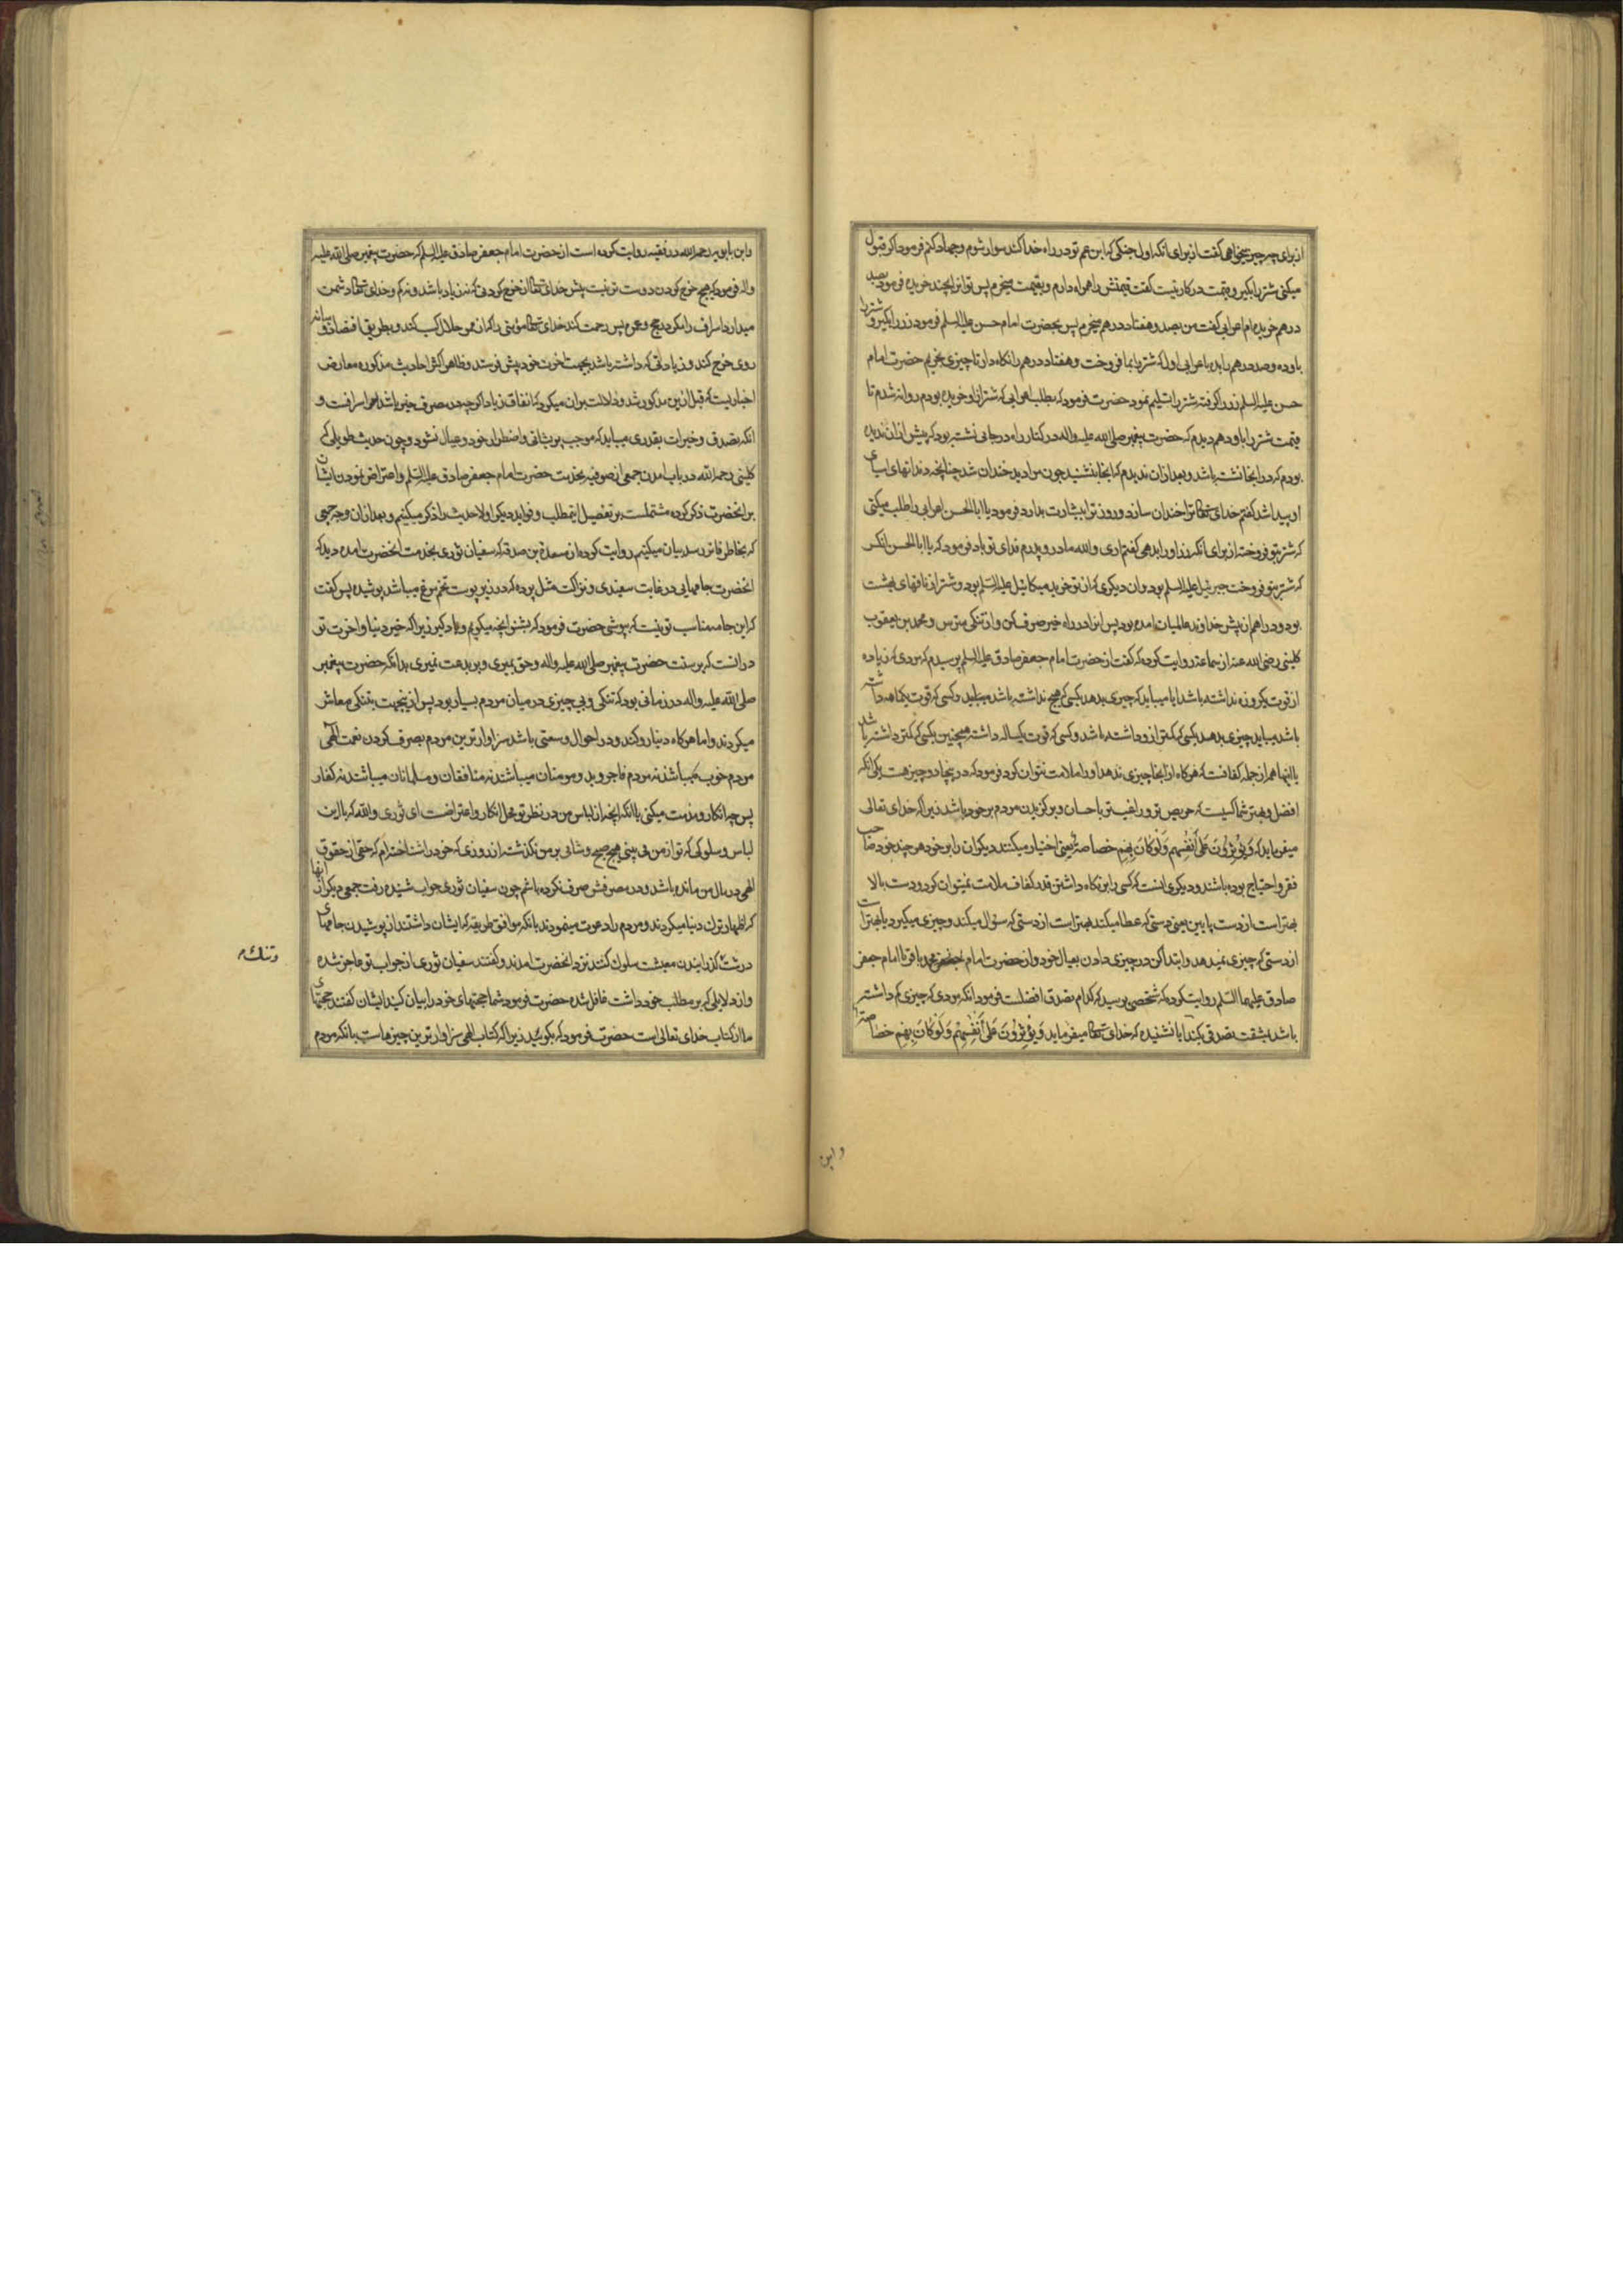 از برای چه چیز میخواهی گفت از برای انکه اول جنکی که ابن عم تو در راه خدا کند سوار شوم و جهاد کنم فرمود اکر قبول
میکنی شتر را بکیر و بقیمت در کار نیست گفت قیمتش را همراه دارم و بقیمت میخرم پس تو انرا بچند خریده فرمود بصد
درهم خریده ام اعرابی گفت من بصد و هفتاد درهم میخرم پس بحضرت امام حسن علیه السلم فرمود زر را بکیر و شتر را
باو ده و صد درهم را بده باعرابی اول که شتر بما فروخت و هفتاد درهم را نکاه دار تا چیزی بخریم حضرت امام
حسن علیه السلم زر را کرفته شتر را تسلیم نمود حضرت فرمود که بطلب اعرابی که شتر ازاو خریده بودم روانه شدم تا
قیمت شتر را باو دهم دیدم که حضرت پیغمبر صلی الله علیه واله در کنار راه در جائی نشسته بود که پیش از ان ندیده
بودم که در انجا نشسته باشد و بعد ازان ندیدم که انجا بنشیند چون مرا دید خندان شد چنانچه دندانهای اسیای
او پیدا شد کفتم خدای تعالی ترا خندان سازد و روز ترا بشارت بدارد فرمود یا ابا الحسن اعرابی را طلب میکنی
که شتر بتو فروخته از برای انکه زر او را بدهی کفتم اری والله مادر و پدرم فدای تو باد فرمود که یا ابا الحسن انکس
که شتر بتو فروخت جبرئیل علیه السلم بود و ان دیکری که از تو خرید میکائیل علیه السلم بود و شتر از ناقهای بهشت
بود و دراهم از پیش خداوند عالمیان امده بود پس انرا در راه خیر صرف کن و از تنکی مترس و محمد بن یعقوب
کلینی رضی الله عنه از سماعه روایت کرده که گفت از حضرت امام جعفر صادق علیه السلم پرسیدم که مردی که زیاده
از قوت یکروزه نداشته باشد ایا میباید که چیزی بدهد بکسی که هیچ نداشته باشد و کسی که قوت یکماهه داشته
باشد میباید چیزی بدهد بکسی که کمتر ازو داشته باشد و کسی که قوت یکساله داشته همچنین بکسی که کمتر داشته باشد
یا اینها هم از جمله کفافست که هر کاه ازانجا چیزی ندهد او را ملامت نتوان کرد فرمود که در اینجا دو چیز هست یکی انکه
افضل و بهتر شما کسیست که حریص تر و راغب تر باحسان و برکزیدن مردم بر خود باشد زیرا که خدای تعالی
میفرماید که وَيُؤْثِرُونَ عَلَى أَنْفُسِهِمْ وَلَوْ كَانَ بِهِمْ خَصَاصَةٌ یعنی اختیار میکنند دیکران را بر خود هر چند خود صاحب
فقر و احتیاج بوده باشند و دیکری انست که کسی را بر نکاه داشتن قدر کفاف ملامت نمیتوان کرد و دست بالا
بهتر است از دست پایین یعنی دستی که عطا میکند بهتر است از دستی که سؤال میکند و چیزی میکیرد یا بهتر است
از دستی که چیزی نمیدهد و ابتدا کن در چیزی دادن بعیال خود و از حضرت امام محمد باقر یا امام جعفر
صادق علیهما السلم روایت کرده که شخصی پرسید که کدام تصدق افضلست فرمود انکه مردی که چیزی کم داشته
باشد بمشقت تصدقی بکند ایا نشنیده که خدای تعالی میفرماید وَيُؤْثِرُونَ عَلَى أَنْفُسِهِمْ وَلَوْ كَانَ بِهِمْ خَصَاصَةٌ
و ابن
و ابن بابویه رحمه الله در فقیه روایت کرده است از حضرت امام جعفر صادق علیه السلم که حضرت پیغمبر صلی الله علیه
واله فرمود که هیچ خرج کردن دوست تر نیست پیش خدای تعالی از خرج کردنی که نه زیاد باشد و نه کم و خدای تعالی دشمن
میدارد اسراف را مکر در حج و عمره پس رحمت کند خدای تعالی مؤمنی را که از ممر حلال کسب کند و بطریق اقتصاد و میانه
روی خرج کند و زیادتی که داشته باشد بجهت اخرت خود پیش فرستد و ظاهر اکثر احادیث مذکوره معارض
اخباریست که قبل ازین مذکور شد و دلالت بران میکرد که انفاق زیاد اکر چه در مصرف خیر باشد اسرافست و
انکه تصدق و خیرات بقدری میباید که موجب پریشانی و اضطرار خود و عیال نشود و چون حدیث طویلی که
کلینی رحمه الله در باب امدن جمعی از صوفیه بخدمت حضرت امام جعفر صادق علیه السلم و اعتراض نمودن ایشان
بر انحضرت ذکر کرده مشتملست بر تفصیل این مطلب و فواید دیکر اولا حدیث را ذکر میکنیم و بعد ازان وجه جمعی
که بخاطر فاتر رسد بیان میکنیم روایت کرده از مسعدة بن صدقه که سفیان ثوری بخدمت انحضرت امده دید که
انحضرت جامهایی در غایت سفیدی و نزاکت مثل پرده که در زیر پوست تخم مرغ میباشد پوشیده پس گفت
که این جامه مناسب تو نیست که بپوشی حضرت فرمود که بشنو انچه میکویم و یاد کیر زیرا که خیر دنیا و اخرت تو
درانست که بر سنت حضرت پیغمبر صلی الله علیه واله و حق بمیری و بر بدعت نمیری بدانکه حضرت پیغمبر
صلی الله علیه واله در زمانی بود که تنکی و بی چیزی در میان مردم بسیار بود پس ازینجهت بتنکی معاش
میکردند و اما هر کاه دنیا رو کند و در احوال وسعتی باشد سزاوارترین مردم بصرف کردن نعمت الهی
مردم خوب میباشند نه مردم فاجر و بد و مومنان میباشند نه منافقان و مسلمانان میباشند نه کفار
پس چه انکار و مذمت میکنی با انکه انچه از لباس من در نظر تو محل انکار و اعتراضست ای ثوری والله که با این
لباس و سلوکی که تو از من می بینی هیچ صبح و شامی بر من نکذشته از روزی که خود را شناخته ام که حقی از حقوق
الهی در مال من مانده باشد و در مصرفش صرف نکرده باشم چون سفیان ثوری جواب شنیده رفت جمعی دیکر از انها
که اظهار ترک دنیا میکردند و مردم را دعوت مینمودند بانکه موافق طریقه که ایشان داشتند از پوشیدن جامهای
درشت و تنک گذرانیدن معیشت سلوک کنند نزد انحضرت امدند و کفتند سفیان ثوری از جواب تو عاجز شده
و از دلایلی که بر مطلب خود داشت غافل شده حضرت فرمود شما حجتهای خود را بیان کنید ایشان کفتند حجتهای
ما از کتاب خدای تعالی است حضرت فرمود که بکوئید زیرا که کتاب الهی سزاوارترین چیزهاست بانکه مردم